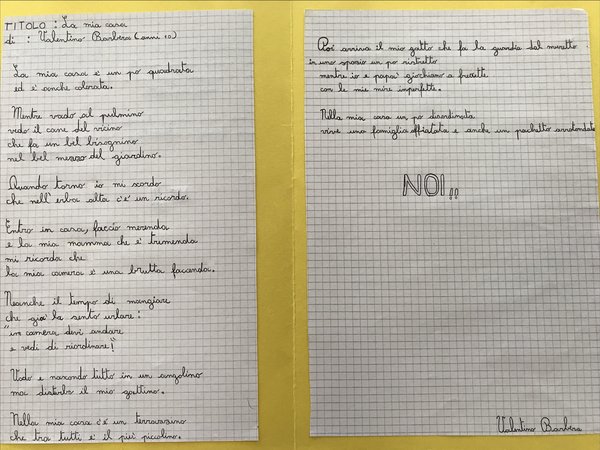 TITOLO : La mia casa
di : Valentino Barbera (anni 10)
La mia casa è un pò quadrata
ed è anche colorata.
Mentre vado al pulmino
vedo il cane del vicino
che fa un bel bisognino
nel bel mezzo del giardino.
Quando torno io mi scordo
che nell'erba alta c'è un ricordo.
Entro in casa, faccio merenda
e la mia mamma che è tremenda
mi ricorda che
la mia camera è una brutta facenda.
Neanche il tempo di mangiare
che già la sento urlare:
"in camera devi andare
e vedi di riordinare!"
Vado e nascondo tutto in un angolino
ma disturbo il mio gattino.
Nella mia casa c'è un terrazzino
che tra tutti è il più piccolino.
Poi arriva il mio gatto che fa la guardia dal muretto
in uno spazio un po ristretto
mentre io e papà giochiamo a freccette
con le mie mire imperfette.
Nella mia casa un po disordinata
vive una famiglia affiatata e anche un pochetto arrotondata
NOI!!
Valentino Barbera